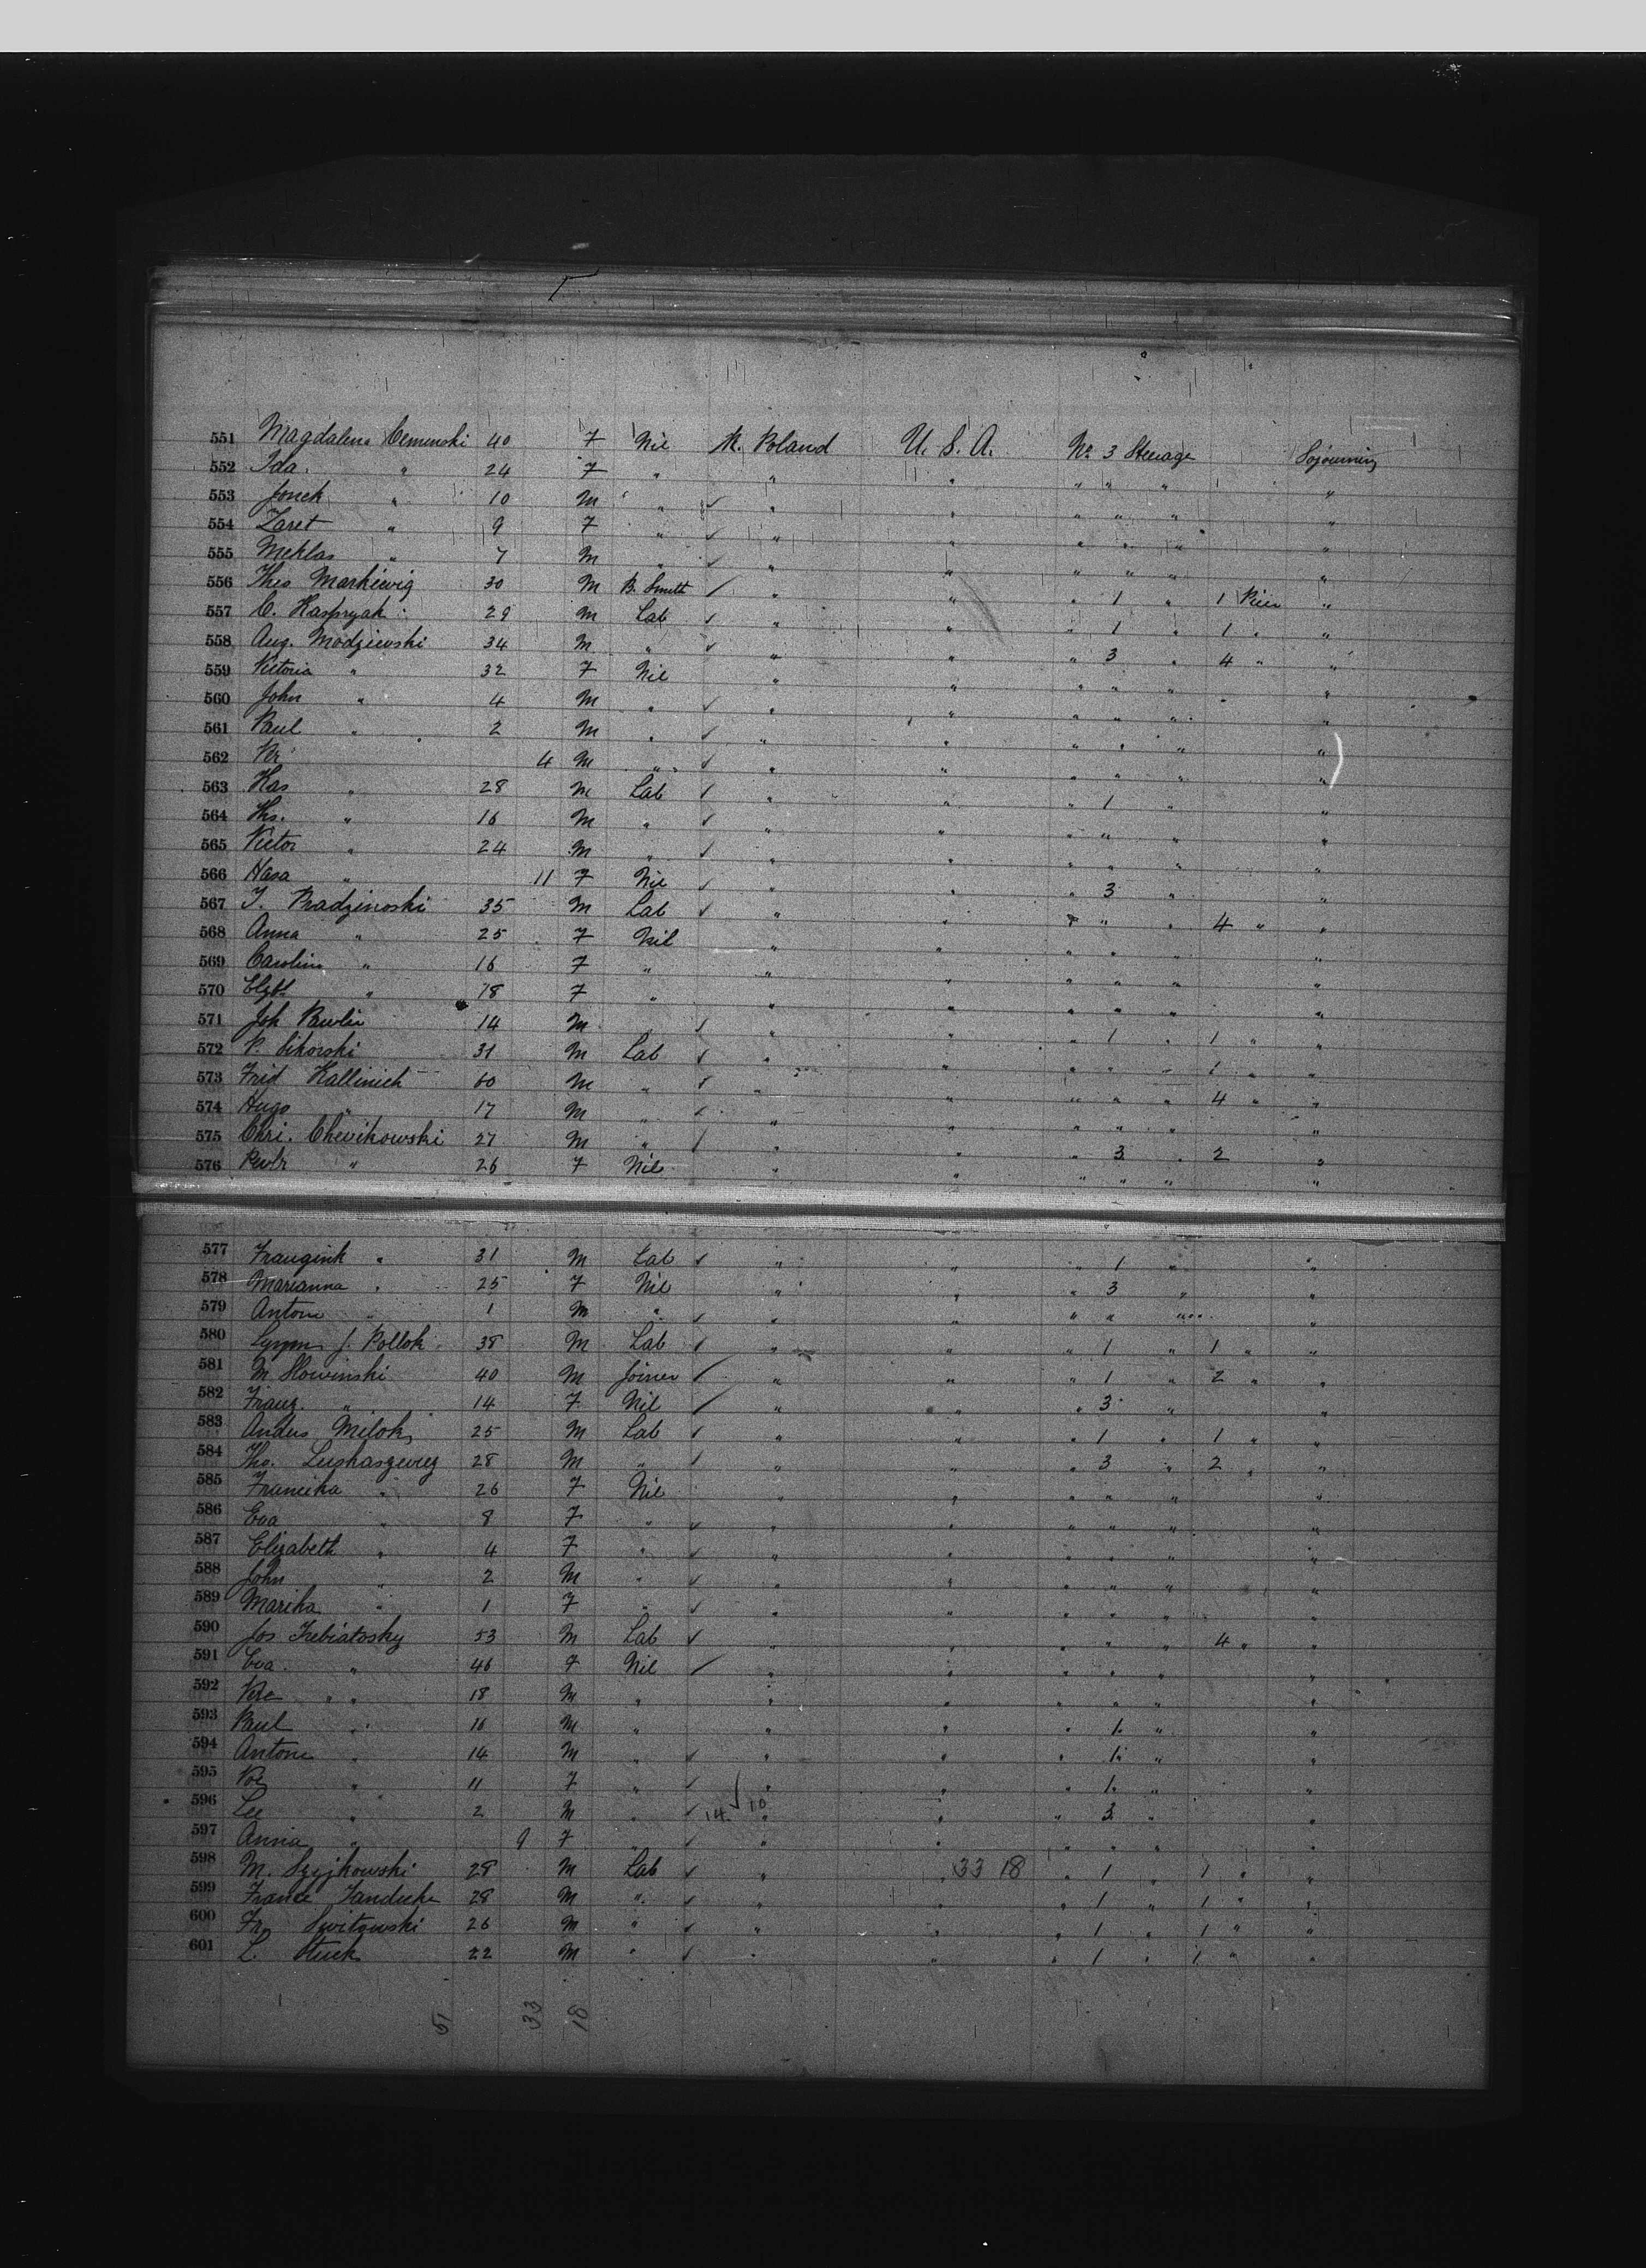 551 Magdalena Ceminski 40 F Nil R. Poland U. S. A. No 3 Steerage Sojourning
552 Ida " 24 F " " " " " " "
553 Jonek " 10 M " " " " " " "
554 Zaret " 9 F " " " " " " "
555 Meklas " 7 M " " " " " " "
556 Theo Markiewig 30 M B. Smith " " " 1 " 1 Piece "
557 C. Kaspryak 29 M Lab " " " 1 " 1 " "
558 Aug. Modziewski 34 M " " " " 3 " 4 " "
559 Victoria " 32 F Nil " " " " " "
560 John " 4 M " " " " " " "
561 Paul " 2 M " " " " " " "
562 4 M " " " " " " "
563 Kas " 28 M Lab " " " 1 " "
564 Ths. " 16 M " " " " " " "
565 Victor " 24 M " " " " " " "
566 Hasa " 11 F Nil " " " 3 " "
567 J. Pradzinoski 35 M Lab " " " " " 4 " "
568 Anna " 25 F Nil " " " " " "
569 Carolina " 16 F " " " " " " "
570 Elzbt " 18 F " " " " " " "
571 Joh Pawlin 14 M " " " " 1 " 1 " "
572 P. Sikorski 31 M Lab " " " " " 1 " "
573 Frid Kallinich 60 M " " " " " " 4 " "
574 Hugo " 17 M " " " " " " "
575 Chri. Chevikowski 27 M " " " " 3 " 2 "
576 " 26 F Nil " " " " " "
577 Fraugink " 31 M Lab " " " 1 " "
578 Marianna " 25 F Nil " " " 3 " "
579 Antoni " 1 M " " " " " " "
580 J. Pollok 38 M Lab " " " 1 " 1 " "
581 M Slowinski 40 M Joiner " " " 1 " 2 " "
582 Franz. " 14 F Nil " " " 3 " "
583 Andus Milok 25 M Lab " " " 1 " 1 " "
584 Tho. Lushasgewieg 28 M " " " " 3 " 2 " "
585 Francika " 26 F Nil " " " " " "
586 Eva " 8 F " " " " " " "
587 Elizabeth " 4 F " " " " " " "
588 John " 2 M " " " " " " "
589 Marika " 1 F " " " " " " "
590 Jos Trebiatosky 53 M Lab " " " " " 4 " "
591 Eva " 46 F Nil " " " " " "
592 " " 18 M " " " " " " "
593 Paul " 16 M " " " " 1 " "
594 Antoni " 14 M " " " " 1 " "
595 " 11 F " " " " 1 " "
596 Lee " 2 M " 14 10 " " " 3 " "
597 Anna " 9 F " " " " " " "
598 M. Szyjkowski 28 M Lab " " 33 18 " 1 " 1 " "
599 Frank Jandick 28 M " " " " 1 " 1 " "
600 Fr. Switowski 26 M " " " " 1 " 1 " "
601 L. Stuck 22 M " " " " 1 " 1 " "
51 33 18